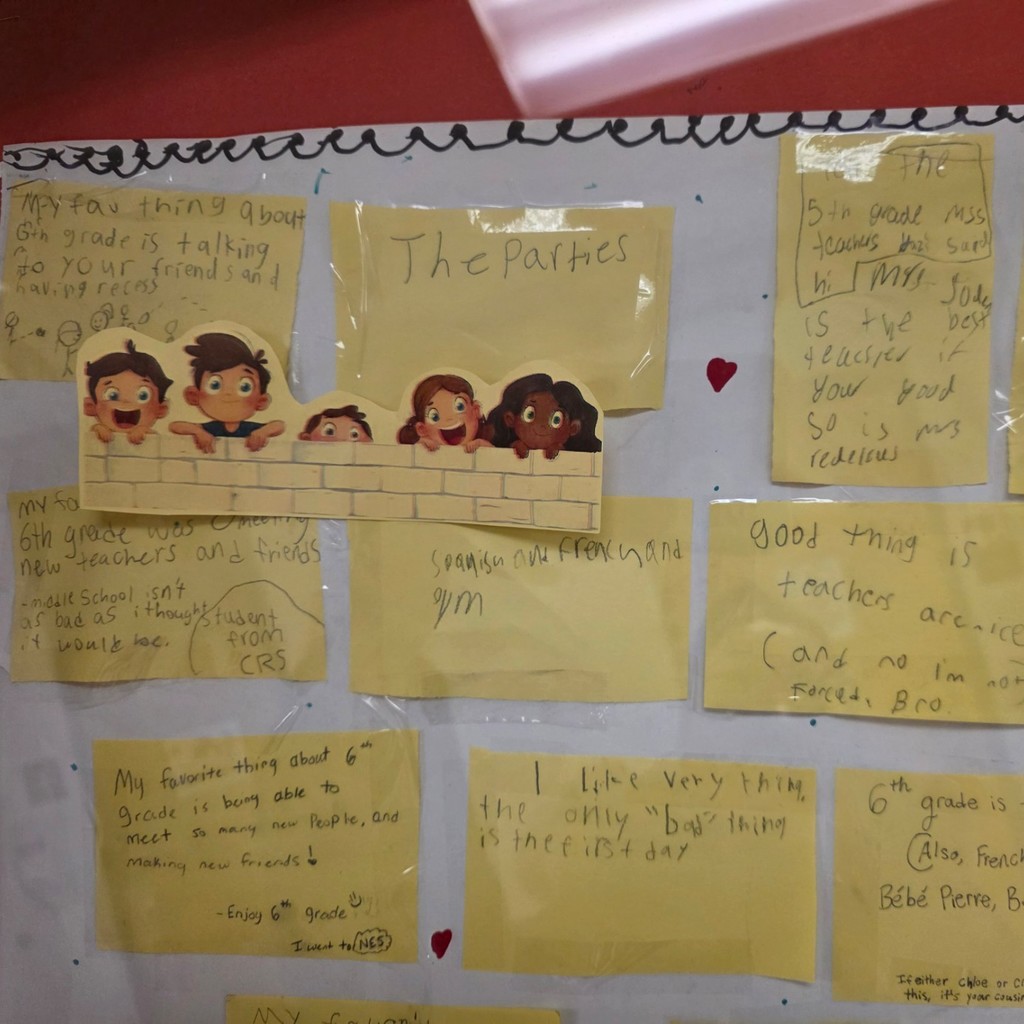 My fav thing about
6th grade is talking
to your friends and
having recess
The Parties
The
5th grade mss
teachers said
hi Mrs.
is the best
teacher if
your good
so is mrs
my fa
6th grade was meeting
new teachers and friends
- middle School isn't
as bad as i thought
it would be.
Student
from
CRS
Spanish and French and
gym
good thing is
teachers
are nice
(and no i'm not
Forced, Bro.
My favorite thing about 6th
grade is being able to
meet so many new People, and
making new friends!
- Enjoy 6th grade
I went to NES
I like very thing,
the only "bad" thing
is the first day
6th grade is
(Also, French
Bébé Pierre, B
If either chloe or C
this, it's your cousin
My